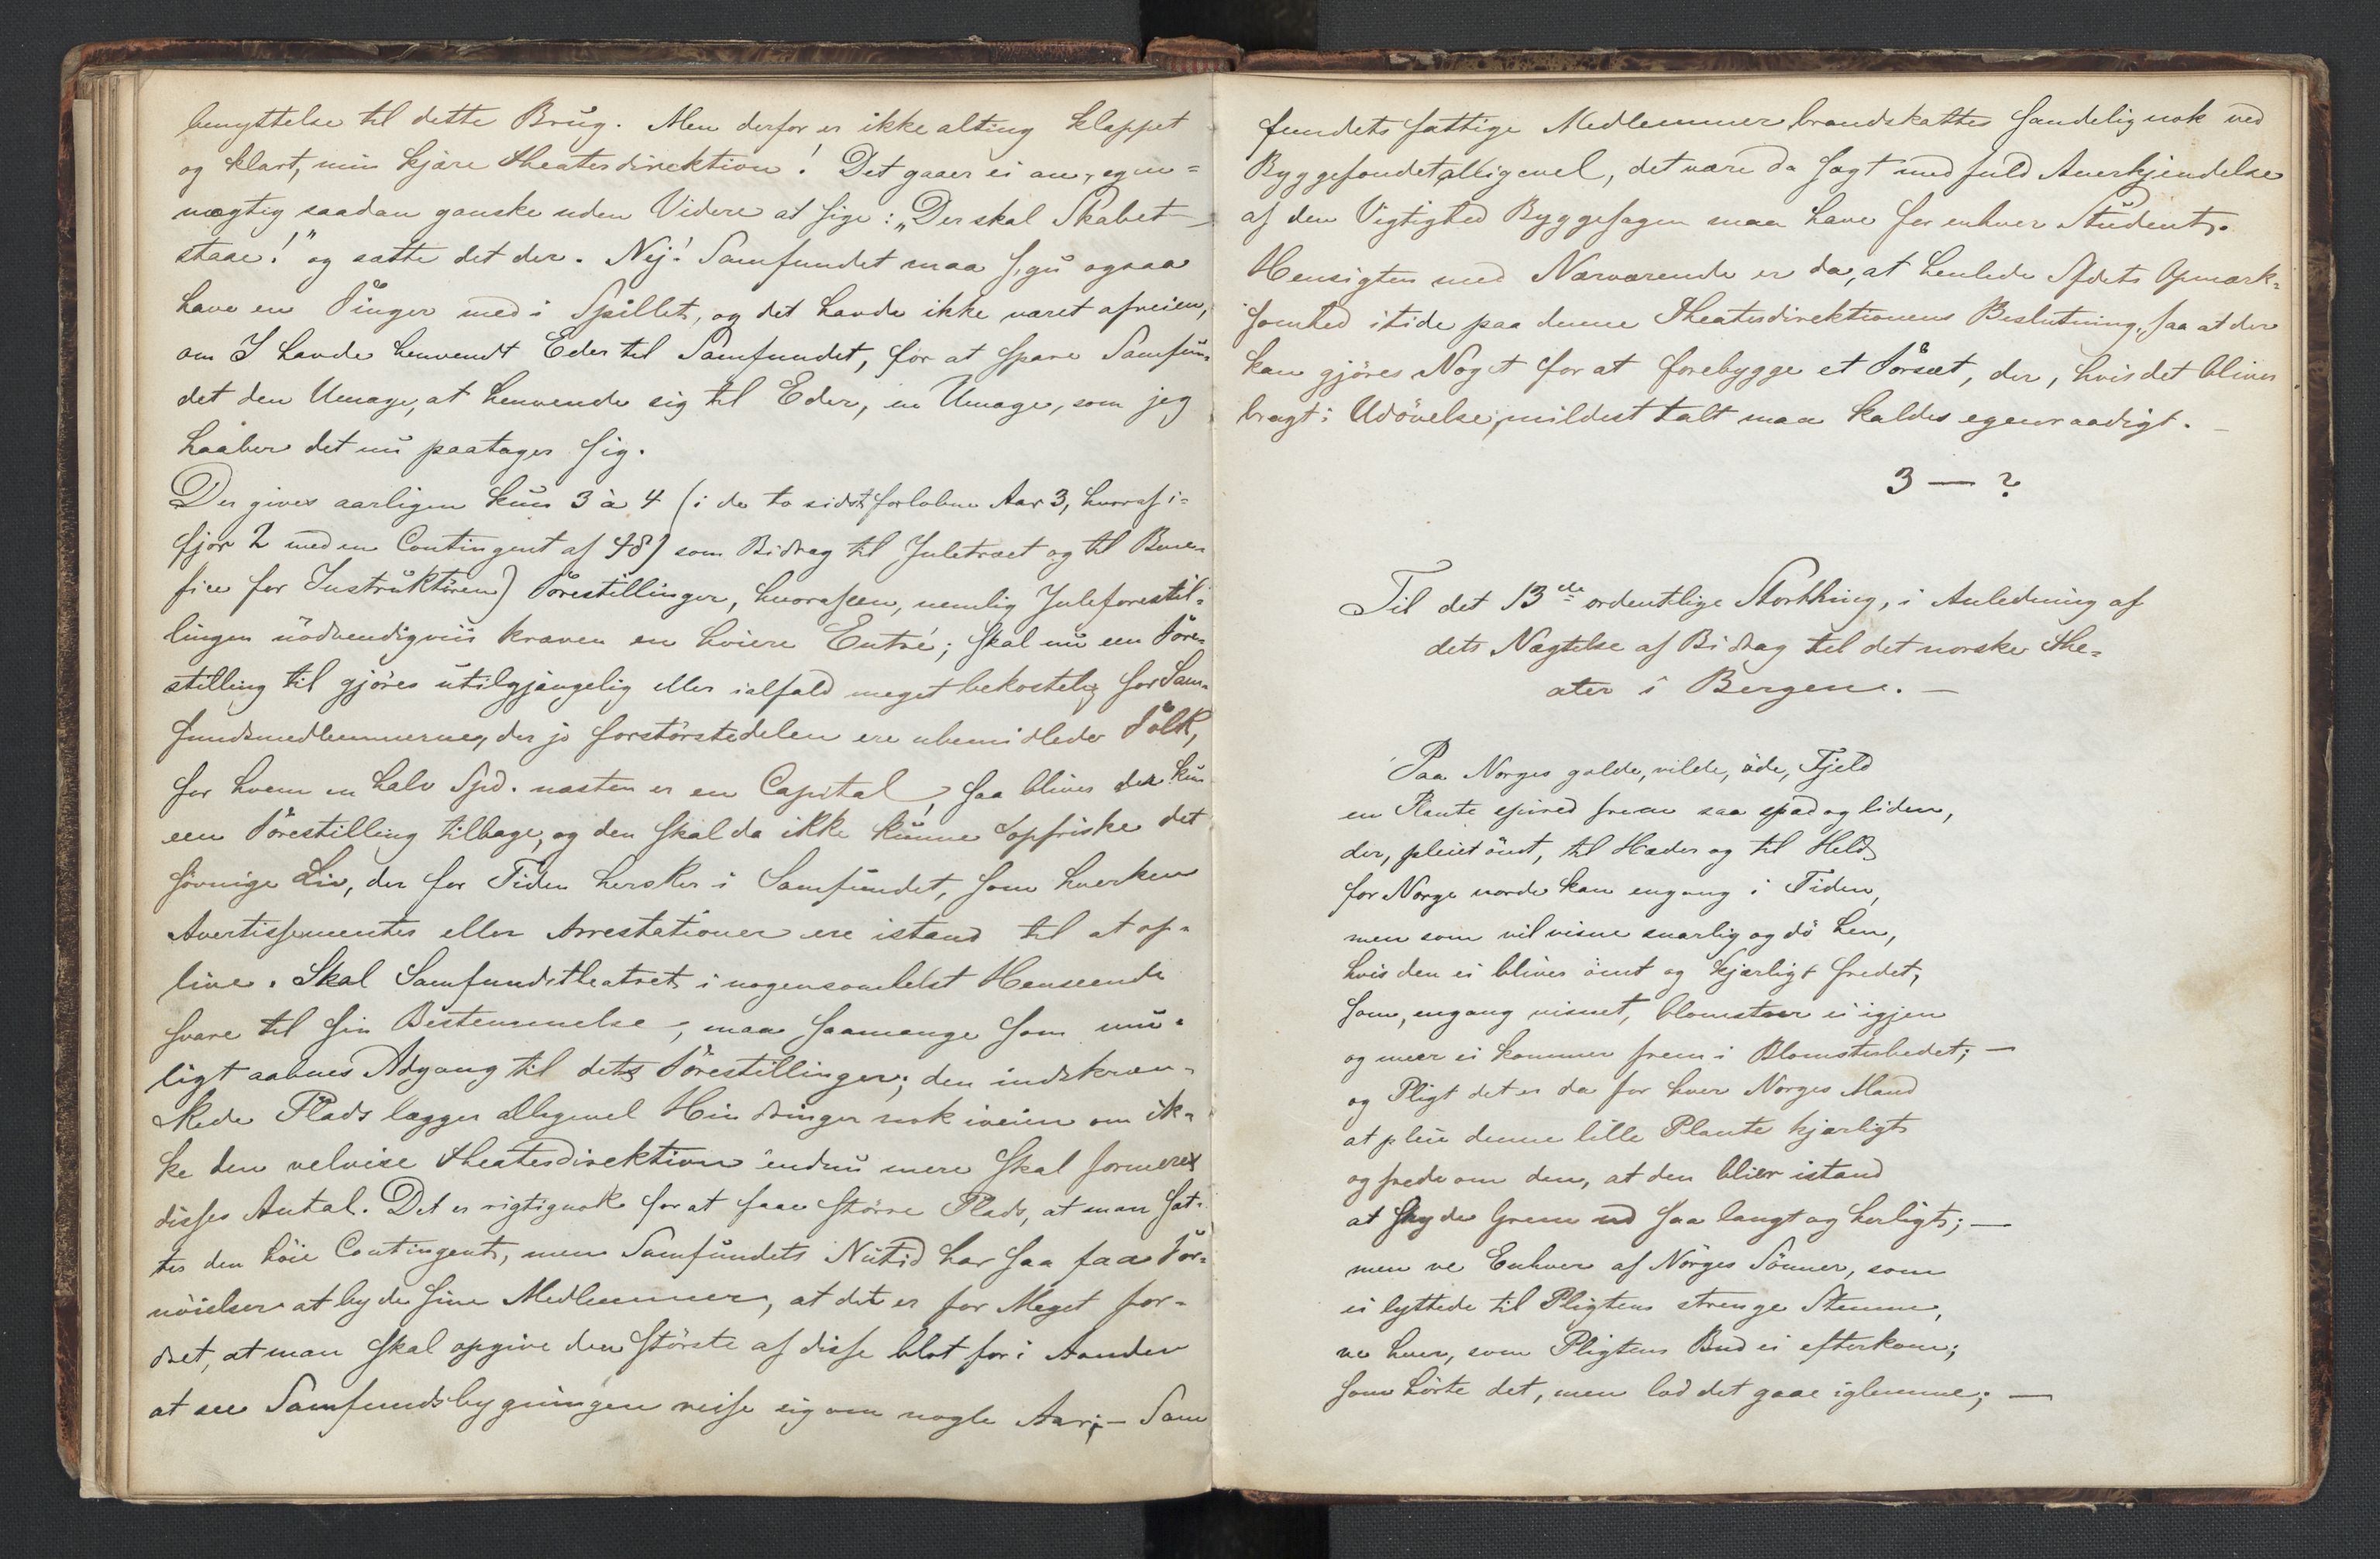 benyttelse til dette Brug. Men derfor er ikke alting klappet
og klart, min kjære Theaterdirektion! Det gaaer ei an, egen=
mægtig saadan ganske uden Videre at sige: „Der skal Skabet
staae!" og sætte det der. Nej! Samfundet maa s'gu ogsaa
have en Finger med i Spillet, og det havde ikke været afveien,
om I havde henvendt Eder til Samfundet, for at spare Samfun=
det den Umage, at henvende sig til Eder, en Umage, som jeg
haaber det nu paatager sig.
Der gives aarligen kun 3 à 4 (i de to sidst forløbne Aar 3, hvoraf i=
fjor 2 med en Contingent af 48 som Bidrag til Juletræet og til Bene=
fice for Instruktøren) Forestillinger, hvoraf een, nemlig Juleforestil=
lingen nödvendigviis kræver en höiere Entré; skal nu een Fore=
stilling til gjöres utilgjængelig eller ialfald meget bekostelig for Sam=
fundsmedlemmerne, der jo forstörstedelen ere ubemidlede Folk,
for hvem en halv Spd. næsten er en Capital, saa bliver der kun
een Forestilling tilbage, og den skal da ikke kunne opfriske det
sövnige Liv, der for Tiden hersker i Samfundet, som hverken
Avertissementer eller Arrestationer ere istand til at op=
live. Skal Samfundstheatret i nogensomhelst Henseende
svare til sin Bestemmelse, maa saamange som mu=
ligt aabnes Adgang til dets Forestillinger; den indskræn=
kede Plads lægger alligevel Hindringer nok iveien om ik=
ke den velvise Theaterdirektion endnu mere skal formere
disses Antal. Det er rigtignok for at faae större Plads, at man sat=
tes den höie Contingent, men Samfundets Nutid har saa faa For=
nöielser at byde sine Medlemmer, at det er for Meget for=
dret, at man skal opgive den störste af disse blot for i Aanden
at see Samfundsbygningen reise sig om nogle Aar; — Sam
fundets fattige Medlemmer brandskattes sandelig nok ved
Byggefondet alligevel, det være da sagt med fuld Anerkjendelse
af den Vigtighed Byggesagen maa have for enhver Student.
Hensigten med Nærværende er da, at henlede Sfdets Opmærk=
somhed itide paa denne Theaterdirektionens Beslutning, saa at der
kan gjöres Noget for at forebygge et Forsæt, der, hvis det bliver
bragt i Udövelse, mildest talt maa kaldes egenraadigt. —
3 — ?
Til det 13de ordentlige Storthing, i Anledning af
dets Nægtelse af Bidrag til det norske The=
ater i Bergen. —
Paa Norges golde, vilde, öde, Fjeld
en Plante spired frem saa spæd og liden,
der, pleiet ömt, til Hæder og til Held
for Norge vorde kan engang i Tiden,
men som vil visne snarlig og dö hen,
hvis den ei bliver ömt og kjærligt fredet,
som, engang visnet, blomstrer ei igjen
og meer ei kommer frem i Blomsterbedet; —
og Pligt det er da for hver Norges Mand
at pleie denne lille Plante kjærligt
og frede om den, at den blier istand
at skyde Grene ud saa langt og herligt; —
men ve Enhver af Norges Sönner, som
ei lyttede til Pligtens strenge Stemme,
ve hver, som Pligtens Bud ei efterkom;
som hörte det, men lod det gaae iglemme; —